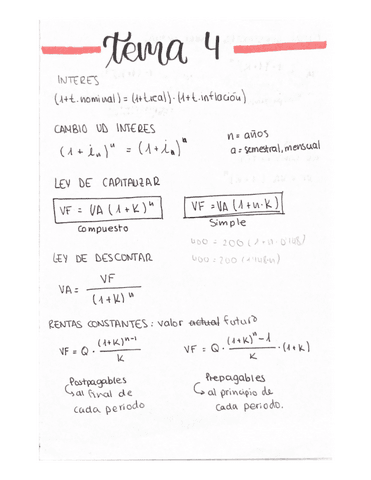 tema 4
INTERES
(1+t.nominal) = (1+t.real) · (1+t.inflación)
CAMBIO UD INTERES
(1 + iₙ)ⁿ = (1 + iₐ)ᵃ
n = años
a = semestral, mensual
LEY DE CAPITALIZAR
VF = VA (1+K)ⁿ
Compuesto
VF = VA (1+n·K)
Simple
LEY DE DESCONTAR
VA = VF / (1+K)ⁿ
RENTAS CONSTANTES: valor actual futuro
VF = Q · (1+K)ⁿ⁻¹ / K
VF = Q · (1+K)ⁿ - 1 / K · (1+K)
Postpagables
al final de
cada periodo
Prepagables
al principio de
cada periodo.